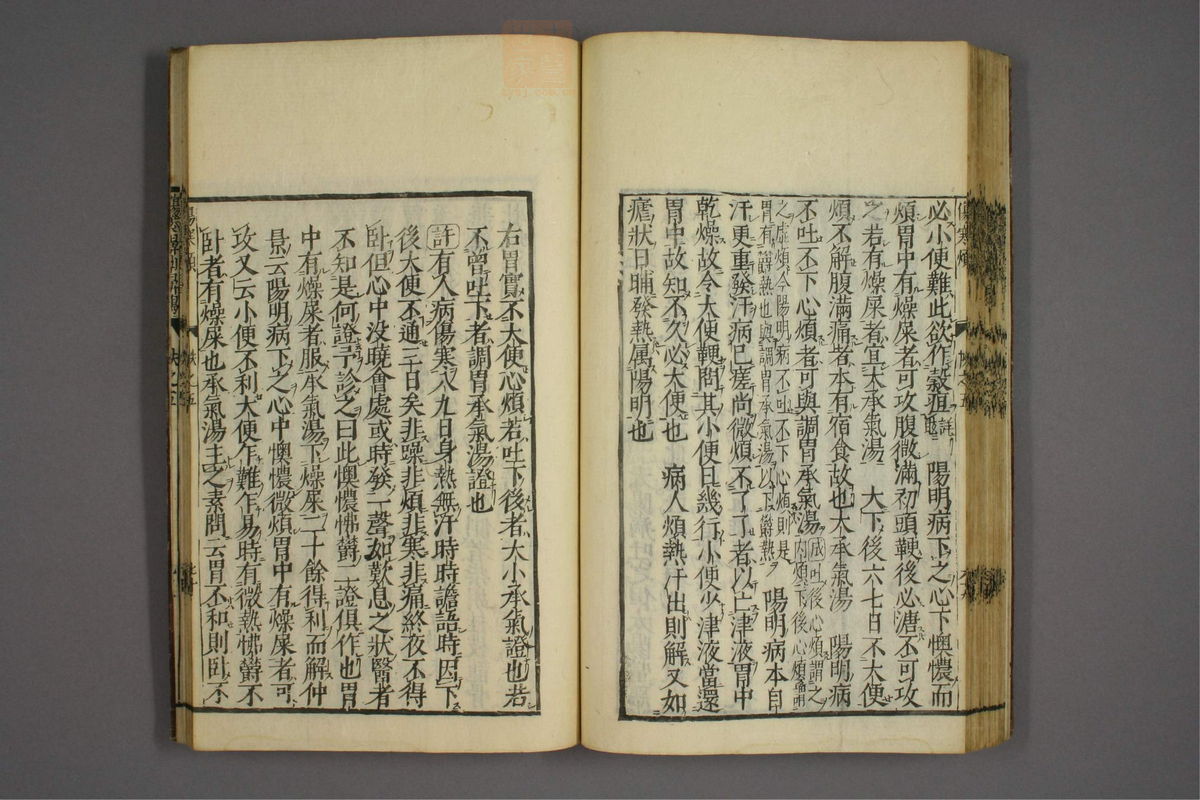 必小便難此欲作穀疸
陽明病下之心下懊憹而
煩胃中有燥屎者可攻腹微滿初頭鞕後必溏不可攻
之若有燥屎者宜大承氣湯 大下後六七日不大便
煩不解腹滿痛者本有宿食故也大承氣湯 陽明病
不吐不下心煩者可與調胃承氣湯
成吐後心煩謂之
内煩下後心煩謂
之虛煩今陽明病不吐不下心煩則是
胃有鬱熱也與調胃承氣湯以下鬱熱
陽明病本自
汗更重發汗病已瘥尚微煩不了了者以亡津液胃中
乾燥故令大便鞕問其小便日幾行小便少津液當還
胃中故知不久必大便也 病人煩熱汗出則解又如
瘧狀日晡發熱属陽明也
右胃實不大便心煩若吐下後者大小承氣證也若
不曾吐下者調胃承氣湯證也
許有人病傷寒八九日身熱無汗時時譫語時因下
後大便不通三日矣非躁非煩非寒非痛終夜不得
卧但心中没曉會處或時發一聲如歎息之狀醫者
不知是何證予診之曰此懊憹怫鬱二證俱作也胃
中有燥屎者服承氣湯下燥屎二十餘得利而解仲
景云陽明病下之心中懊憹微煩胃中有燥屎者可
攻又云小便不利大便乍難乍易時有微熱怫鬱不
卧者有燥屎也承氣湯主之素問云胃不和則卧不